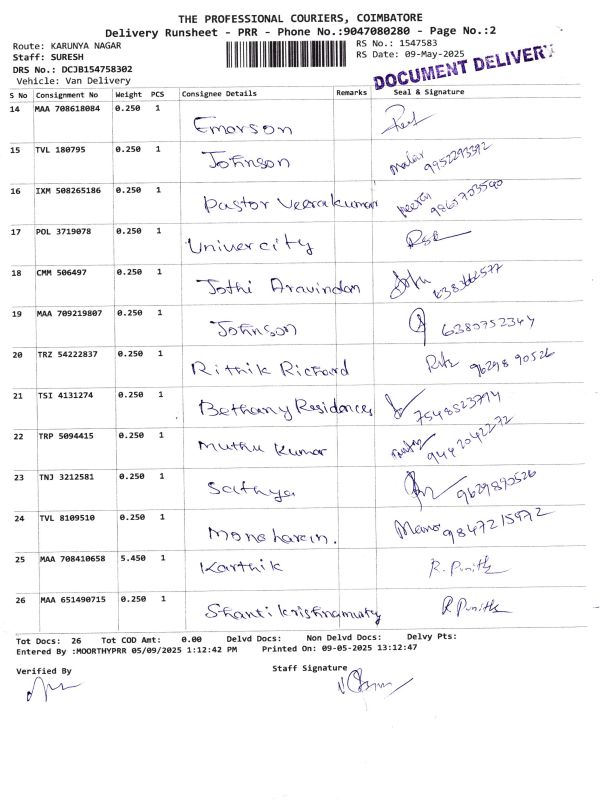 THE PROFESSIONAL COURIERS, COIMBATORE
Delivery Runsheet - PRR - Phone No.:9047080280 - Page No.:2
Route: KARUNYA NAGAR RS No.: 1547583
Staff: SURESH RS Date: 09-May-2025
DRS No.: DCJB154758302
Vehicle: Van Delivery
DOCUMENT DELIVERY
S No Consignment No Weight PCS Consignee Details Remarks Seal & Signature
14 MAA 708618084 0.250 1 Emorson
15 TVL 180795 0.250 1 Johnson 9952293392
16 IXM 508265186 0.250 1 Pastor Veerakumar
17 POL 3719078 0.250 1 Univercity
18 CMM 506497 0.250 1 Jothi Aravindan
19 MAA 709219807 0.250 1 Johnson 6380752344
20 TRZ 54222837 0.250 1 Rithik Richard 9629890526
21 TSI 4131274 0.250 1 Bethany Residences
22 TRP 5094415 0.250 1 Muthu Kumar 9442042272
23 TNJ 3212581 0.250 1 Sathya 9629890526
24 TVL 8109510 0.250 1 Manoharan. Mano 9847215972
25 MAA 708410658 5.450 1 Karthik R. Punith
26 MAA 651490715 0.250 1 Shanti krishnamurty R Punith
Tot Docs: 26 Tot COD Amt: 0.00 Delvd Docs: Non Delvd Docs: Delvy Pts:
Entered By :MOORTHYPRR 05/09/2025 1:12:42 PM Printed On: 09-05-2025 13:12:47
Verified By Staff Signature